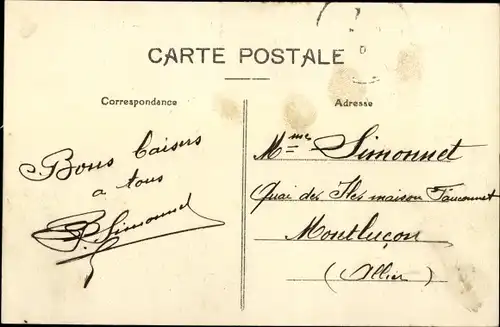 CARTE POSTALE
Correspondance
Adresse
Bons baisers
a tous
P. Simonnet
Mme Simonnet
Quai des Iles maison Fauconnet
Montluçon
(Allier)